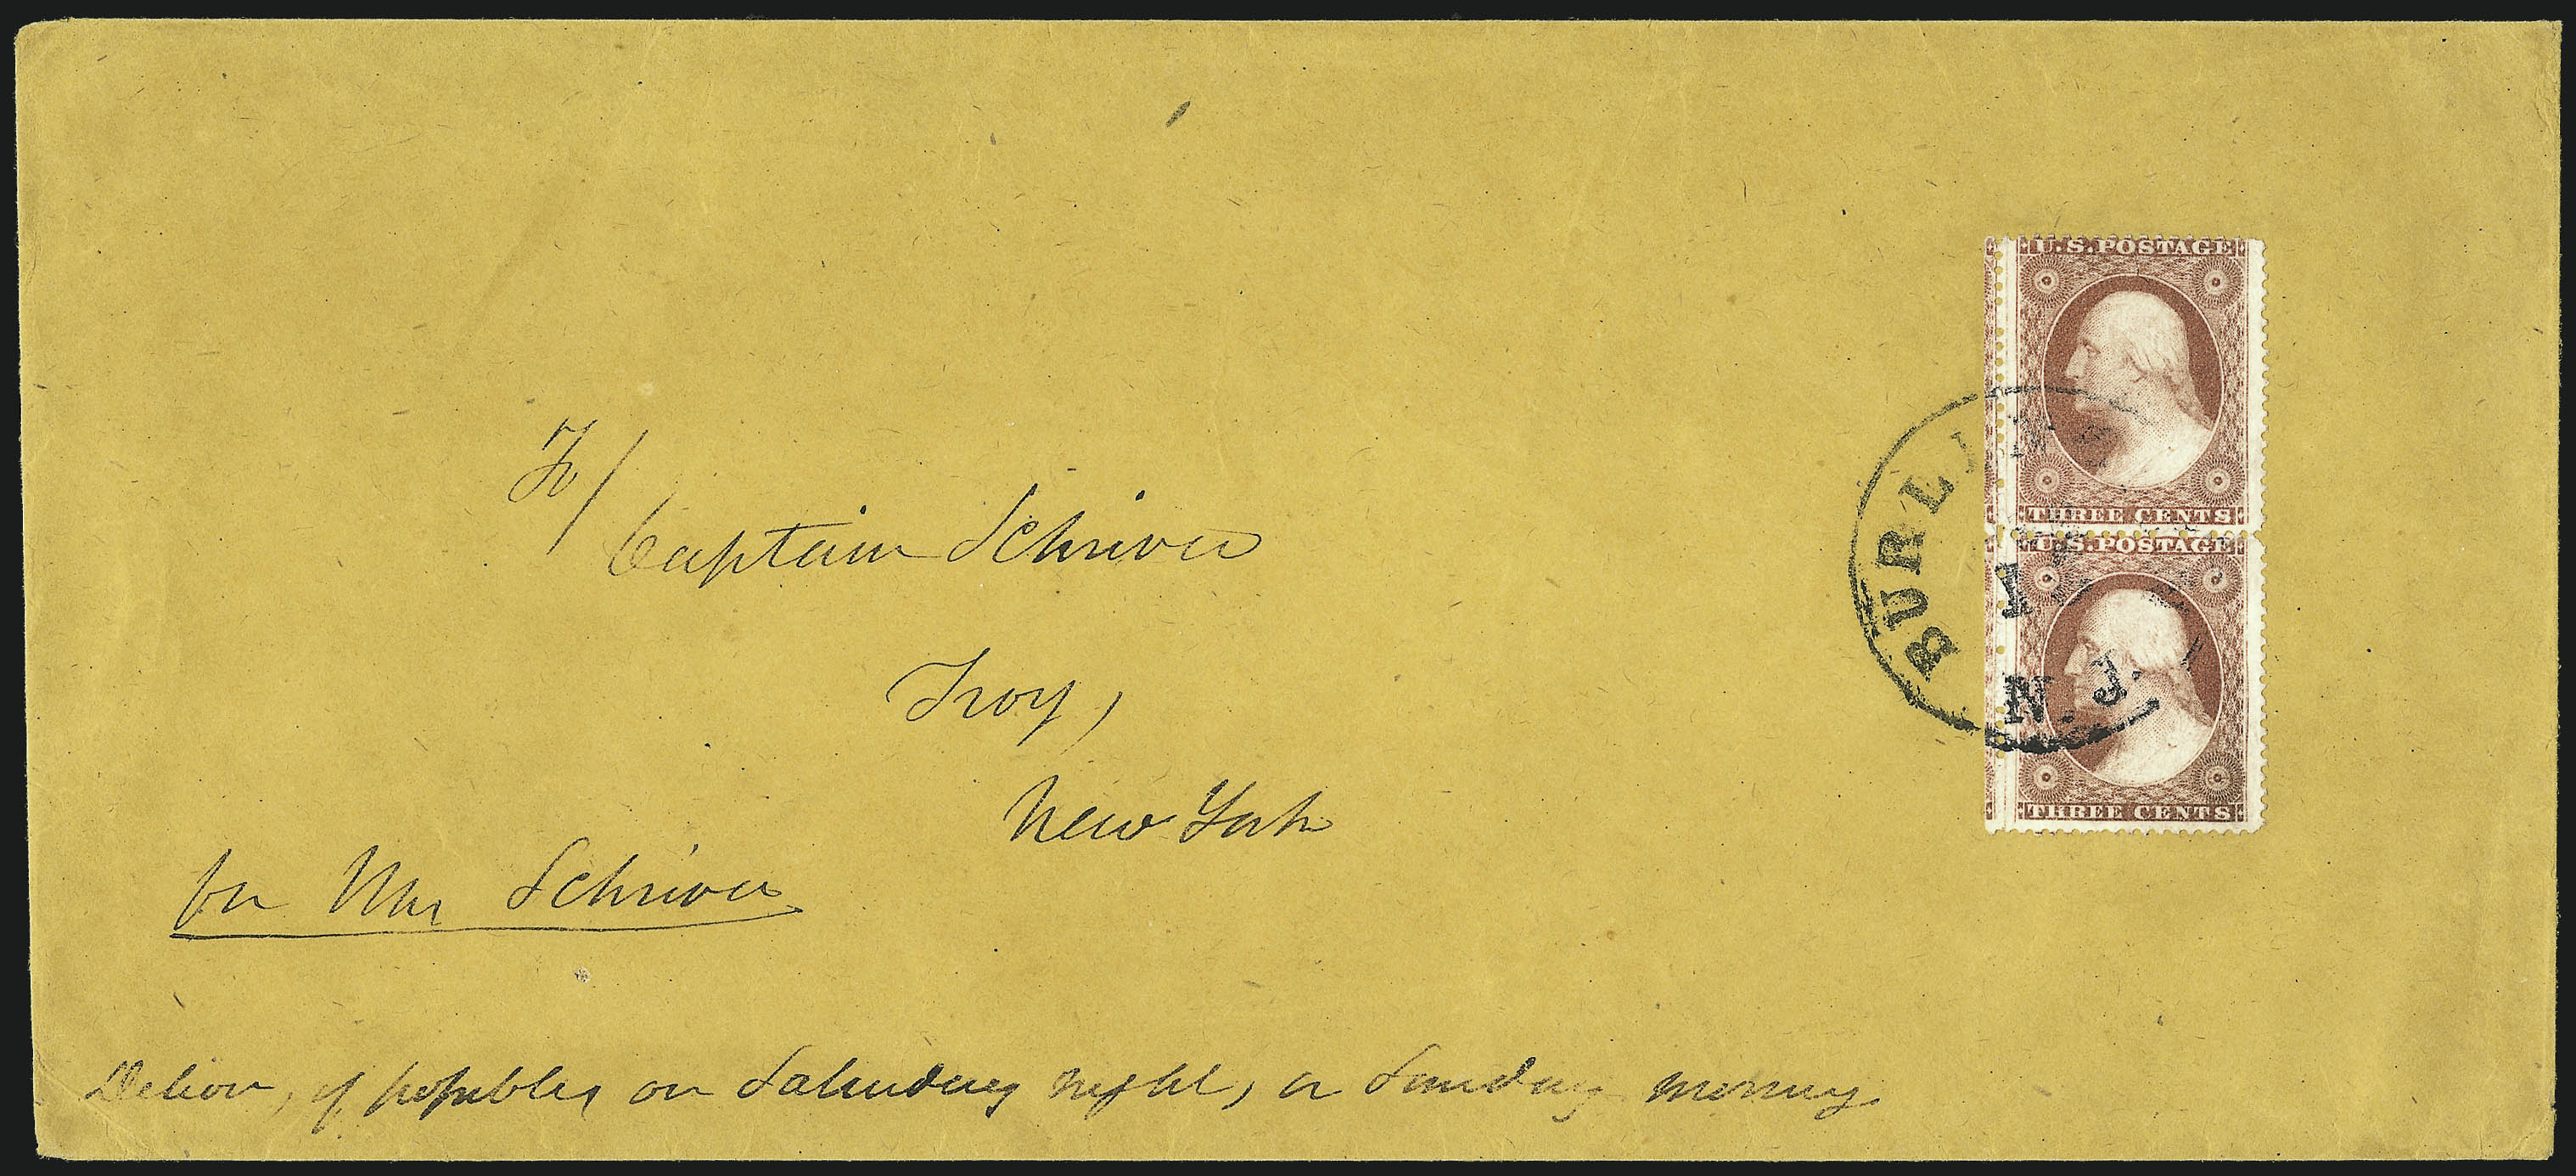 U.S. POSTAGE
THREE CENTS
U.S. POSTAGE
THREE CENTS
BURLIN
N. J.
To/
Captain Schriver
Troy,
New York
for Mr Schriver
Deliver, if possible, on Saturday night, or Sunday morning.